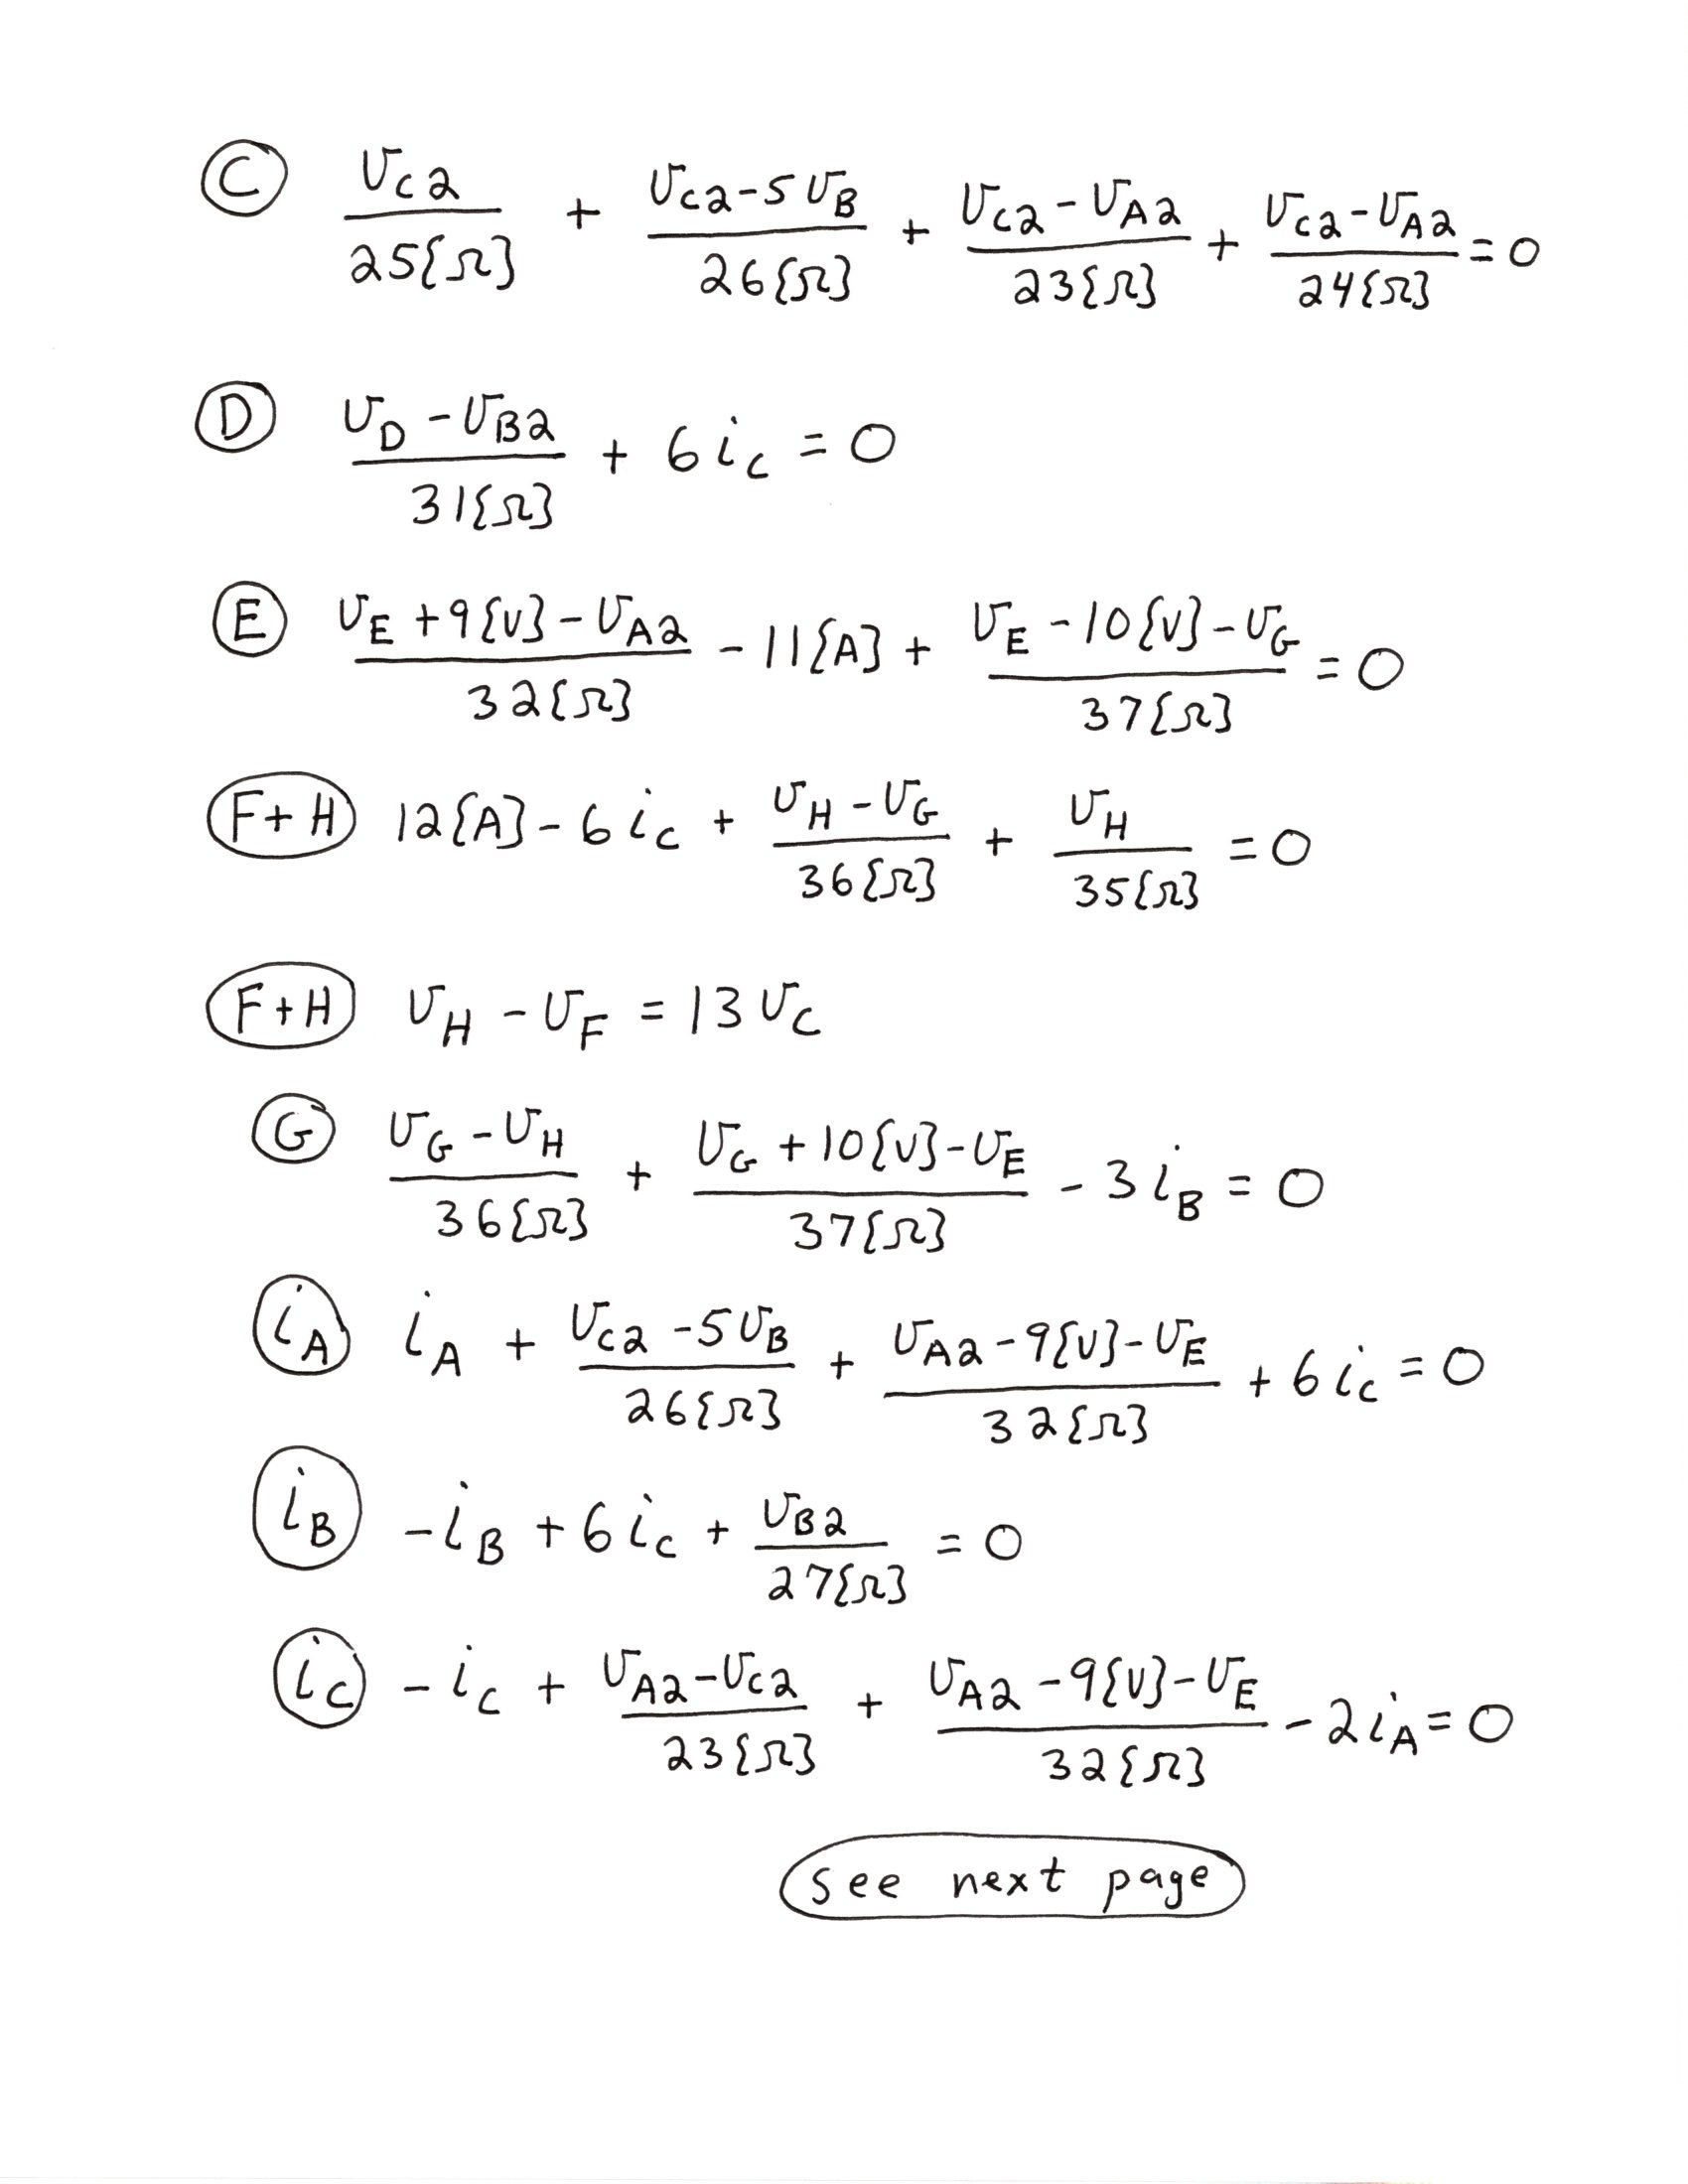 (C) v_C2/25{Ω} + (v_C2 - 5v_B)/26{Ω} + (v_C2 - v_A2)/23{Ω} + (v_C2 - v_A2)/24{Ω} = 0
(D) (v_D - v_B2)/31{Ω} + 6i_C = 0
(E) (v_E + 9{V} - v_A2)/32{Ω} - 11{A} + (v_E - 10{V} - v_G)/37{Ω} = 0
(F+H) 12{A} - 6i_C + (v_H - v_G)/36{Ω} + v_H/35{Ω} = 0
(F+H) v_H - v_F = 13v_C
(G) (v_G - v_H)/36{Ω} + (v_G + 10{V} - v_E)/37{Ω} - 3i_B = 0
(i_A) i_A + (v_C2 - 5v_B)/26{Ω} + (v_A2 - 9{V} - v_E)/32{Ω} + 6i_C = 0
(i_B) -i_B + 6i_C + v_B2/27{Ω} = 0
(i_C) -i_C + (v_A2 - v_C2)/23{Ω} + (v_A2 - 9{V} - v_E)/32{Ω} - 2i_A = 0
see next page